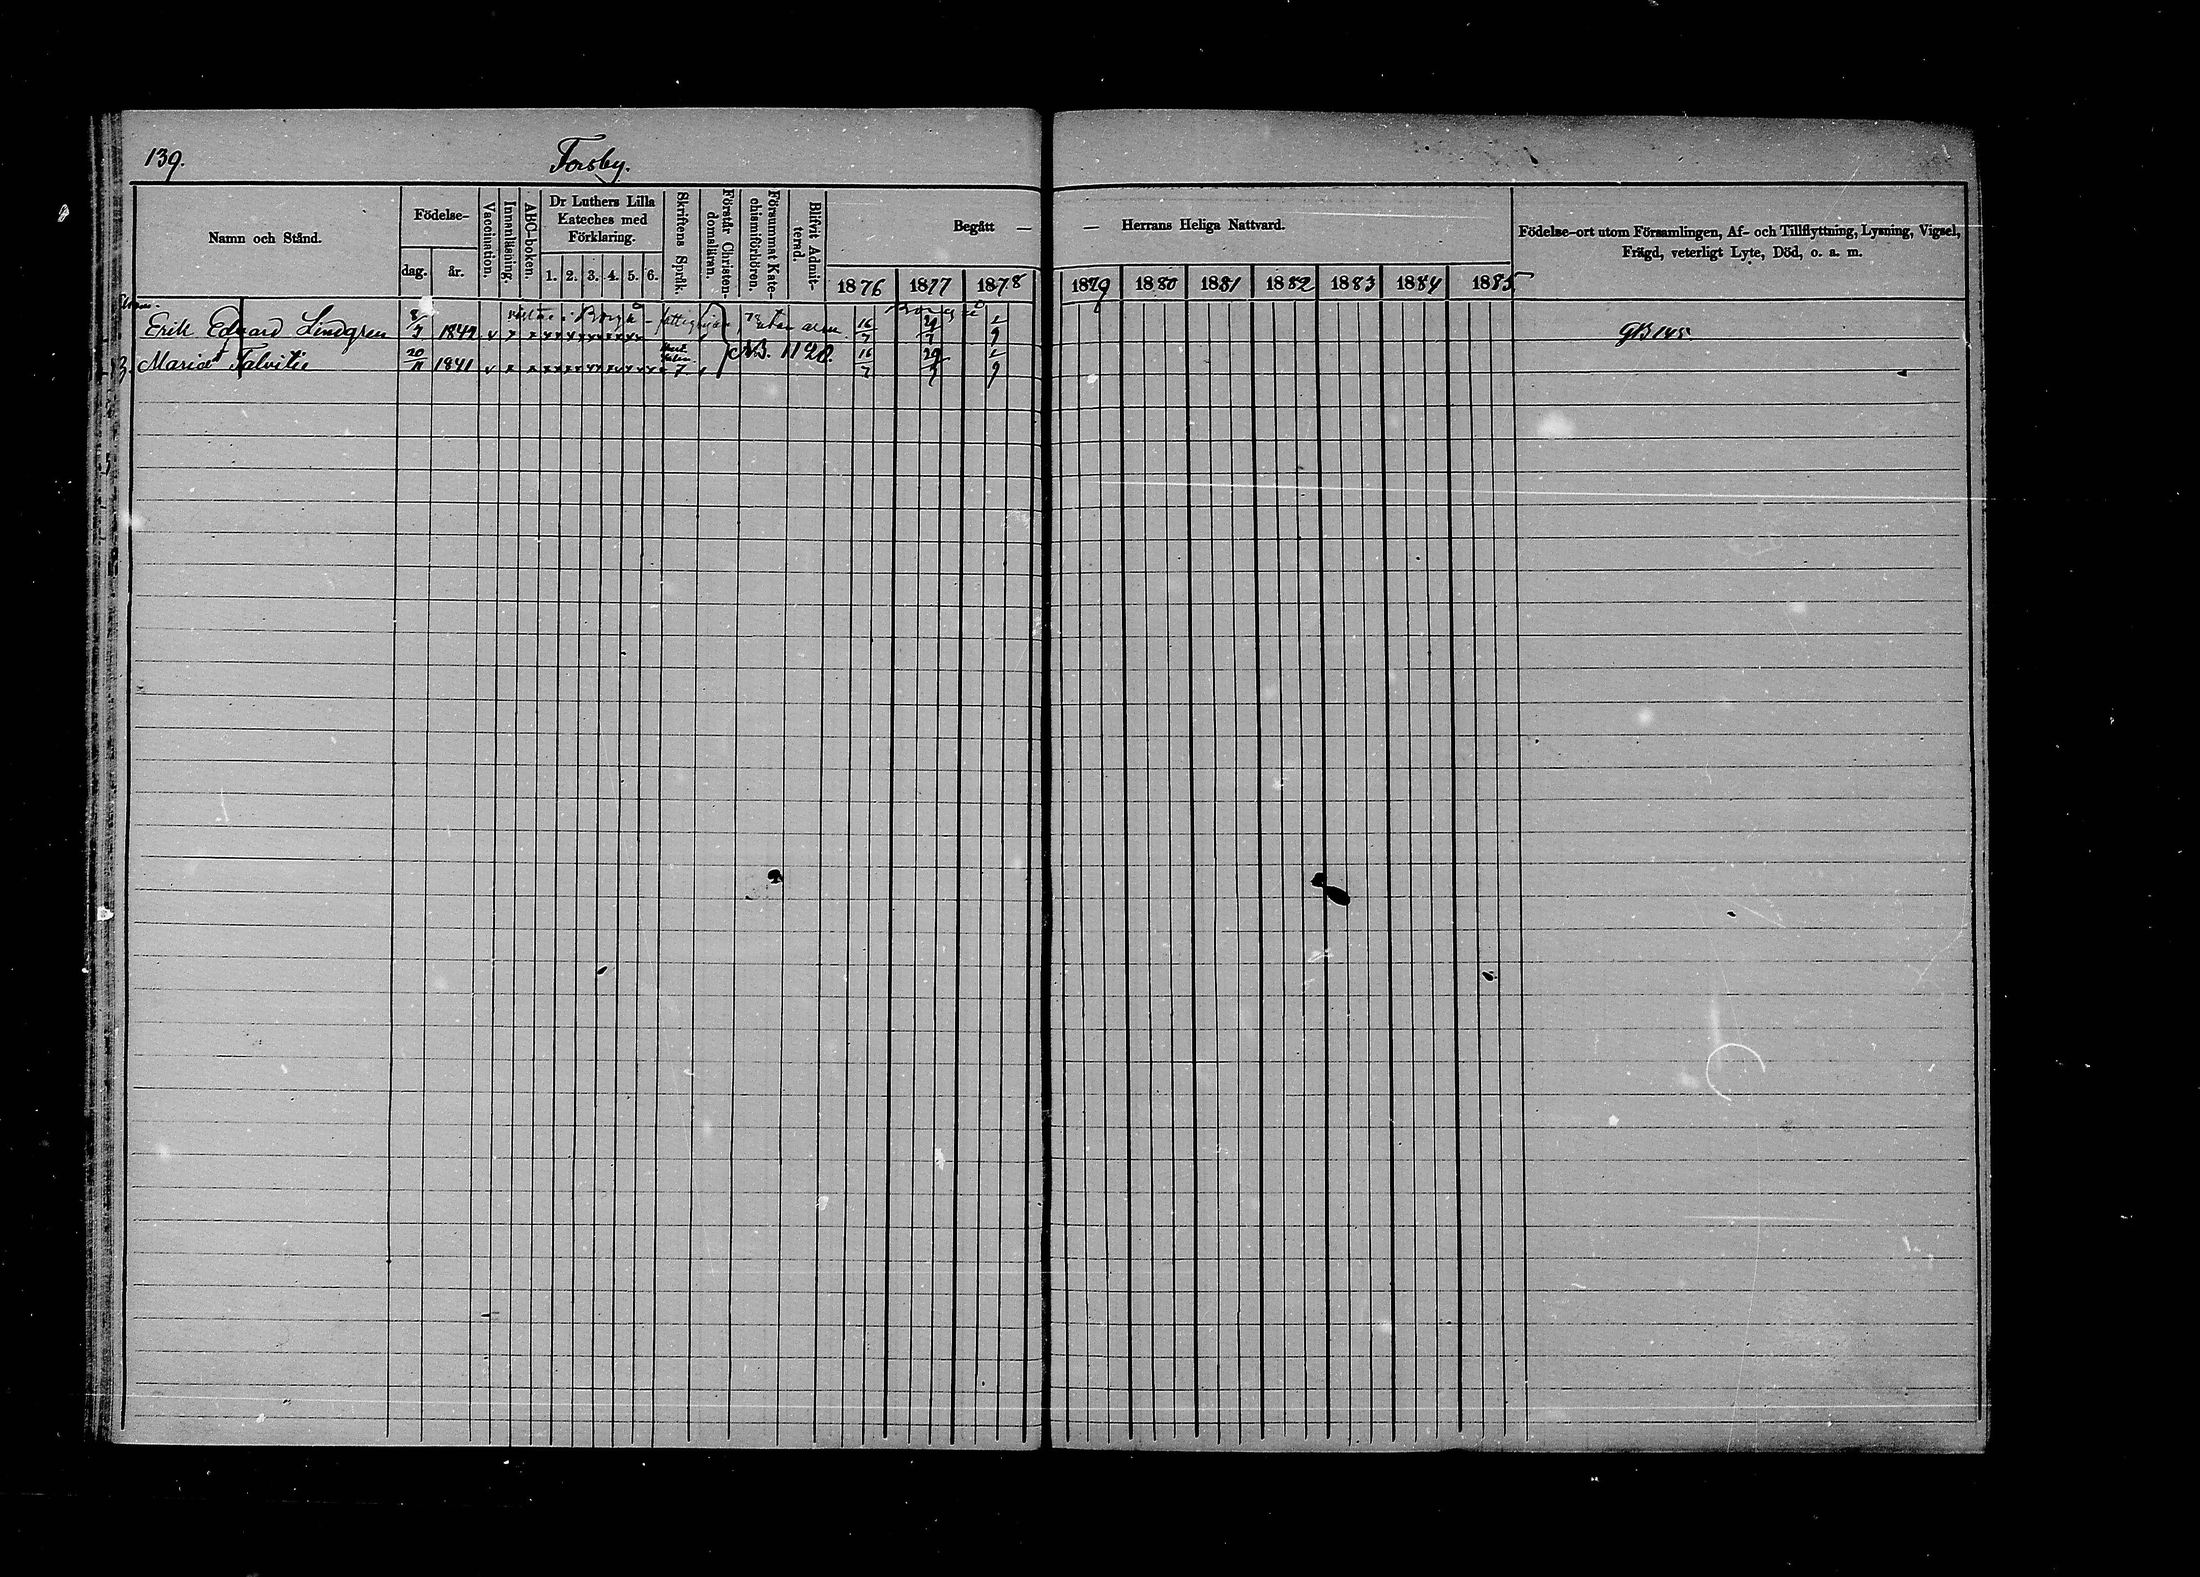 139. Forsby.
Namn och Stånd. Födelse- dag. år. Vaccination. Innanläsning. ABC-boken. Dr Luthers Lilla Kateches med Förklaring. 1. 2. 3. 4. 5. 6. Skriftens Språk. Förstår Christendomsläran. Försummat Katechismiförhören. Blifvit Admitterad. Begått — — Herrans Heliga Nattvard. Födelse-ort utom Församlingen, Af- och Tillflyttning, Lysning, Vigsel, Frägd, veterligt Lyte, Död, o. a. m.
1876 1877 1878 1879 1880 1881 1882 1883 1884 1885
i Borgå Borgå
Erik Edvard Lindgren 1842 16/7 29/7 1/9 GB 145.
Maria Talvitie 20/11 1841 7 NB. 1128. 16/7 29/7 1/9